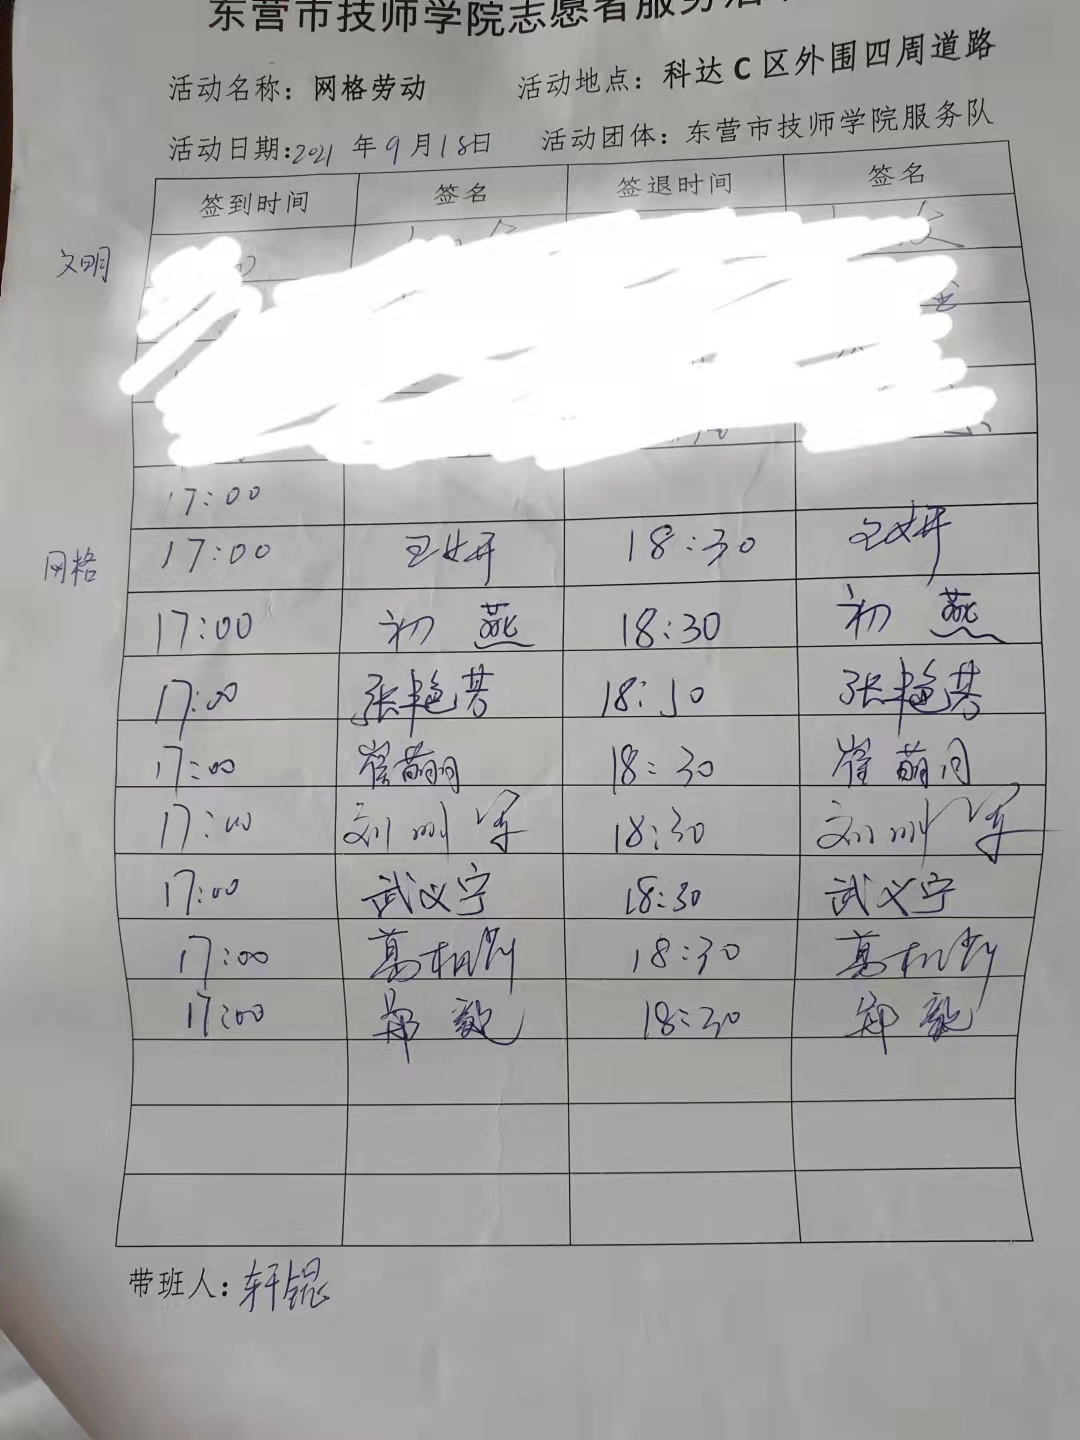 东营市技师学院志愿者服务活
活动名称：网格劳动 活动地点：科达C区外围四周道路
活动日期：2021年9月18日 活动团体：东营市技师学院服务队
签到时间 签名 签退时间 签名
文明
17:00
网格 17:00 王妍 18:30 王妍
17:00 初燕 18:30 初燕
17:00 张艳芳 18:30 张艳芳
17:00 崔萌 18:30 崔萌
17:00 刘刚军 18:30 刘刚军
17:00 武义宁 18:30 武义宁
17:00 葛相 18:30 葛相
17:00 郑毅 18:30 郑毅
带班人：轩锟